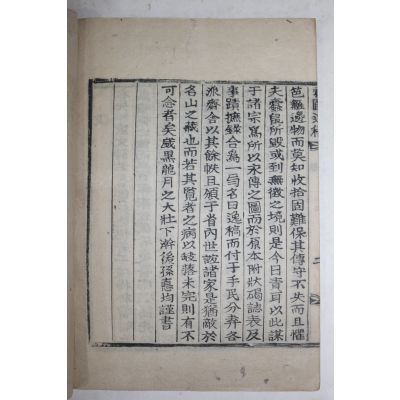 笆籬邊物而莫知收拾固難保其傳守不失而且懼
夫蠹鼠所毁或到無徵之境則是今日責耳以此謀
于諸宗寫所以未傳之圖而於原本附狀碣誌表及
事蹟摭錄合爲一局名曰逸稿而付于手民分弆各
派齋舍以其餘帙且頒于省內世誼諸家是猶敵於
名山之藏也而若其覽者之病以歧落未完則有不
可念者矣歲黑龍月之大壯下澣後孫喜均謹書